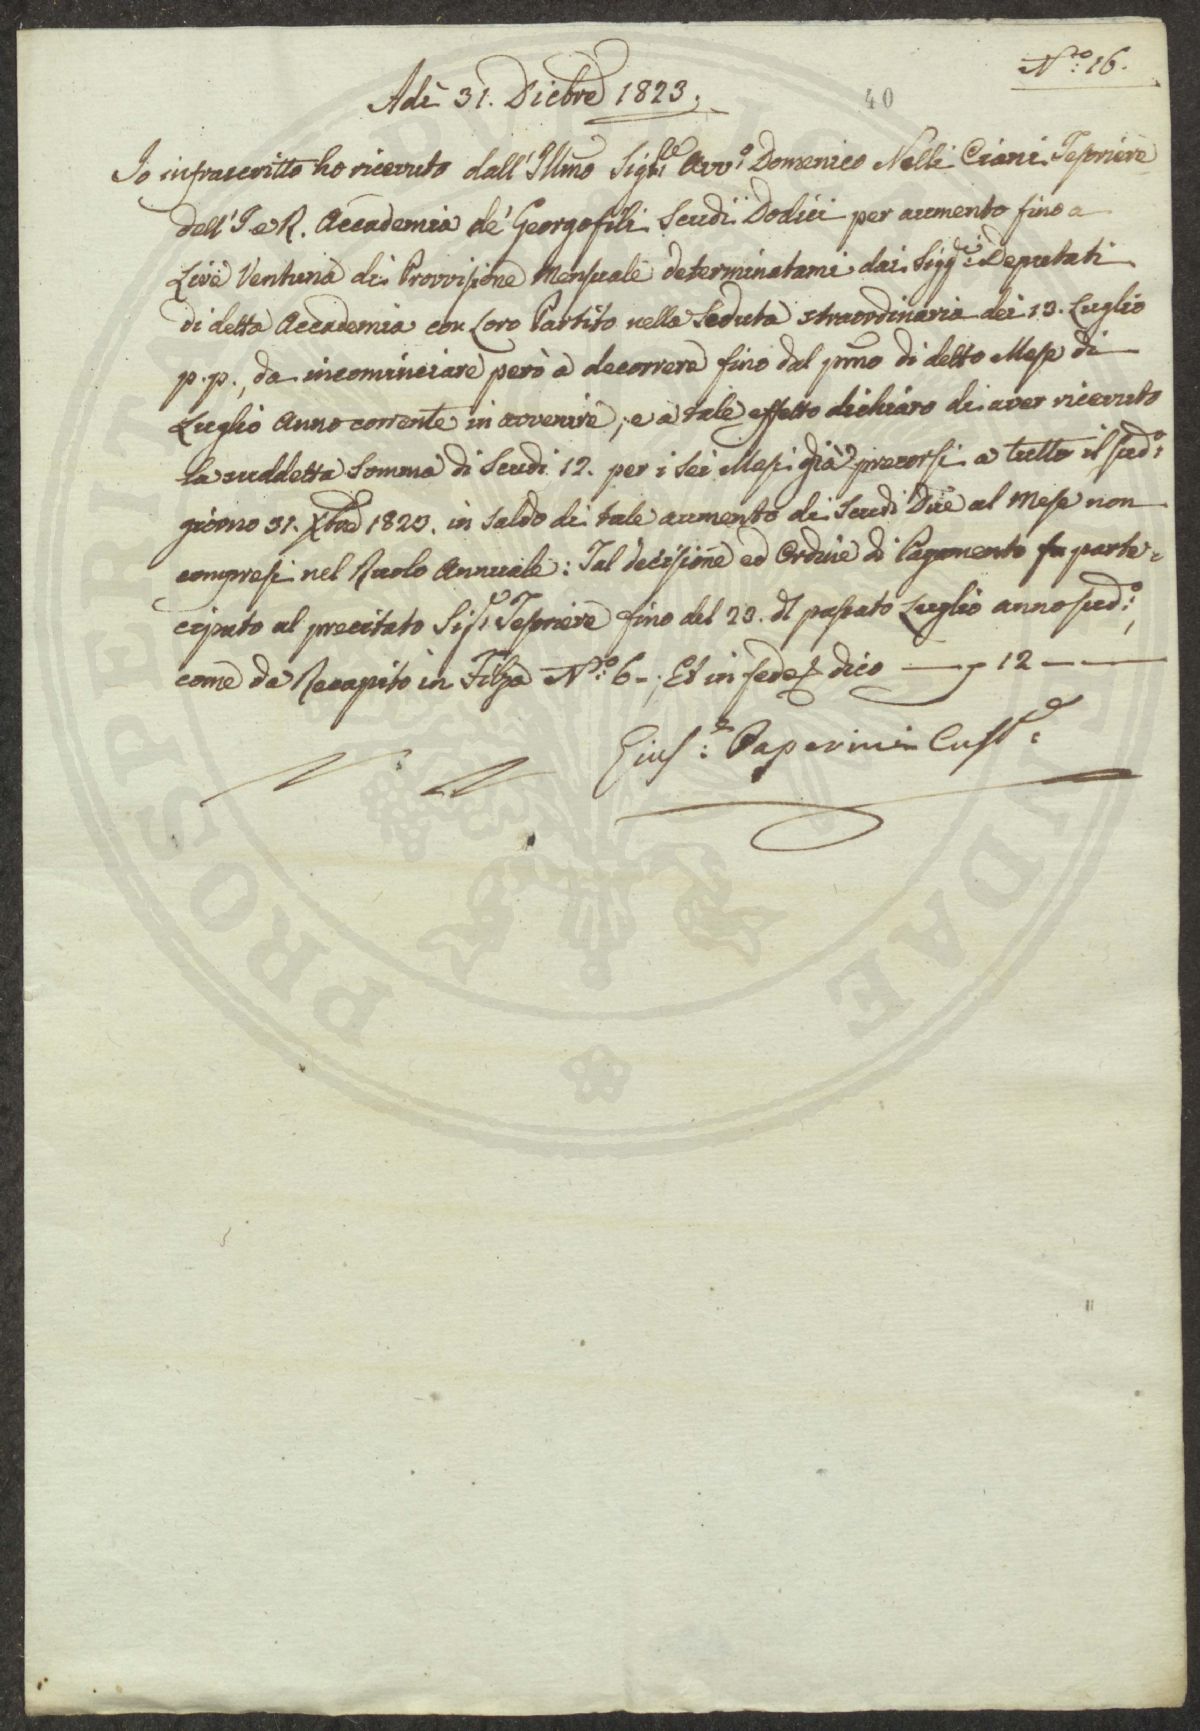 N.º 16.
40
Adì 31. Dicbre 1823.
Io infrascritto ho ricevuto dall'Illmo Sig.re Avv.o Domenico Nelli Ciani Tesoriere
dell'I e R. Accademia de' Georgofili Scudi Dodici per aumento fino a
Lire Ventuna di Provvisione Mensuale determinatami dai Sigg.i Deputati
di detta Accademia con Loro Partito nella Seduta straordinaria dei 13. Luglio
p.p., da incominciare però a decorrere fino dal pmo di detto Mese di
Luglio Anno corrente in avvenire; e a tale effetto dichiaro di aver ricevuto
la suddetta Somma di Scudi 12. per i sei Mesi già precorsi a tutto il sud.o
giorno 31. Xbre 1823. in saldo di tale aumento di Scudi Due al Mese non
compresi nel Ruolo Annuale: Tal decisione ed Ordine di Pagamento fu parte=
cipato al precitato Sig.r Tesoriere fino del 23. dl passato Luglio anno sud.o,
come da Recapito in Filza N.º 6 -; Ed in fede dico — 12 —
Gius.e Paperini Cust.e
PROSPERITATI PUBLICAE AUGENDAE